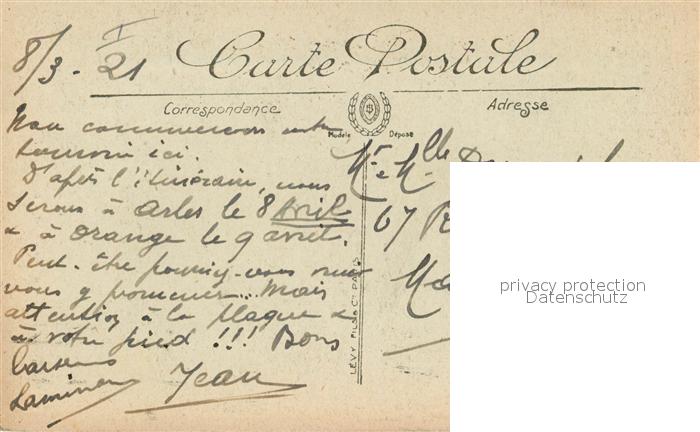 8/3. 21
I
Carte Postale
Correspondance
Adresse
Modèle Déposé
Nous commencerons notre
tournoi ici.
D'après l'itinéraire, nous
serons à Arles le 8 Avril
& à Orange le 9 avril.
Peut-être pourriez-vous venir
vous y promener... Mais
attention à la plaque &
à votre pied !!! Bons
baisers
Jean
LÉVY FILS & Cie PARIS
Mr & Mlle
67
privacy protection
Datenschutz